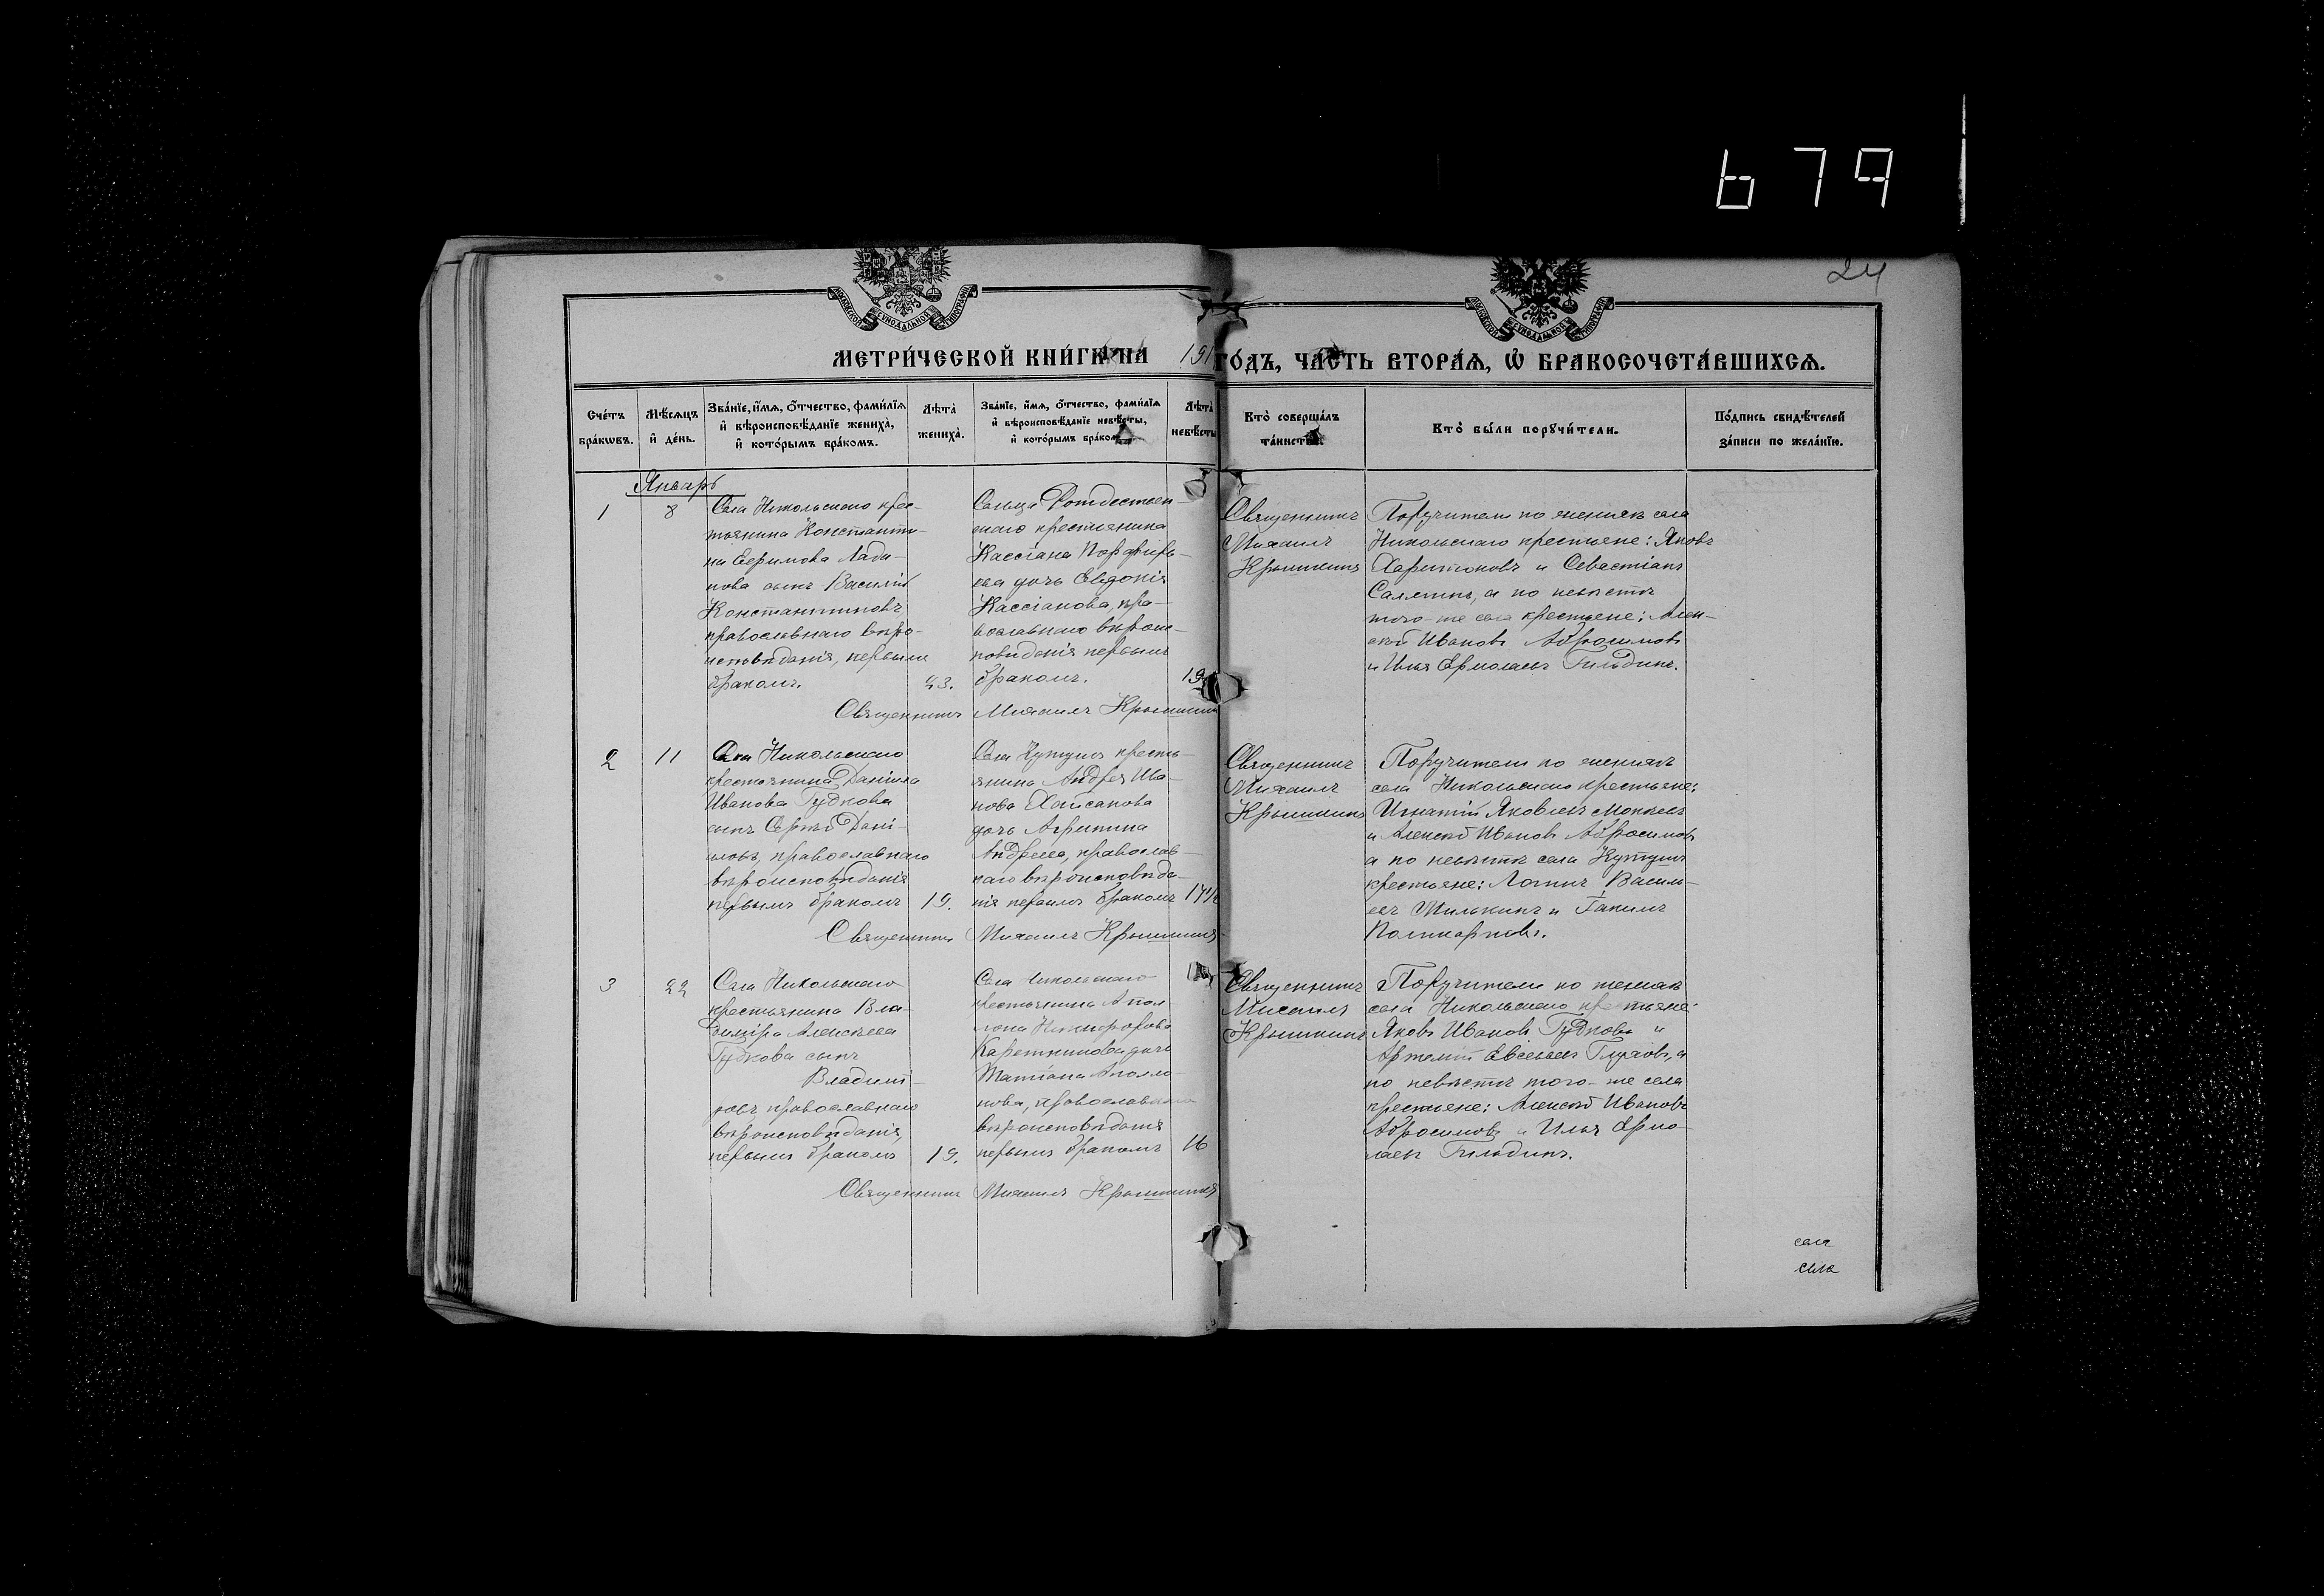 679
24
МОСКОВСКОЙ СѴНОДАЛЬНОЙ ТИПОГРАФІИ
МОСКОВСКОЙ СѴНОДАЛЬНОЙ ТИПОГРАФІИ
МЕТРИ́ЧЕСКОЙ КНИ́ГИ НА 191
ГО́ДЪ, ЧА́СТЬ ВТОРА́Ѧ, Ѽ БРАКОСОЧЕТА́ВШИХСѦ.
Сче́тъ бра́кѡвъ.
Мѣ́сѧцъ и҆ де́нь.
Зва́нїе, и҆́мѧ, ѻ҆́тчество, фами́лїѧ и҆ вѣроисповѣ́данїе жениха̀, и҆ кото́рымъ бра́комъ.
Лѣта̀ жениха̀.
Зва́нїе, и҆́мѧ, ѻ҆́тчество, фами́лїѧ и҆ вѣроисповѣ́данїе невѣ́сты, и҆ кото́рымъ
Лѣта̀ невѣ́сты
Кто̀ соверша́лъ
Кто̀ бы́ли порꙋчи́тели.
По́дпись свидѣ́телей за́писи по жела́нїю.
Январь
1
8
Села Никольскаго крес-
тьянина Константи-
на Ефимова Лада-
нова сынъ Василій
Константиновъ
православнаго вѣро-
исповѣданія, первымъ
бракомъ.
23.
Сельца Рождествен-
скаго крестьянина
Кассіана Порфирь-
ева дочь Евдокія
Кассіанова, пра-
вославнаго вѣроис-
повѣданія первымъ
бракомъ.
19
Священникъ
Михаилъ
Крышкинъ
Поручители по женихѣ села
Никольскаго крестьяне: Яковъ
Харитоновъ и Севастіанъ
а по невѣстѣ
того-же села крестьяне: Алек-
сѣй Ивановъ Абросимовъ
и Илья Ермолаевъ Гильдинъ.
Священникъ Михаилъ Крышкинъ
2
11
Села Никольскаго
крестьянина Даніила
Иванова Гудкова
сынъ Сергѣй Дані-
иловъ, православнаго
вѣроисповѣданія
первымъ бракомъ
19.
Села Кутуши кресть-
янина Андрея Ива-
нова Хайсанова
дочь Агрипина
Андреева, православ-
наго вѣроисповѣда-
нія первымъ бракомъ
17½
Священникъ
Михаилъ
Крышкинъ
Поручители по женихѣ
села Никольскаго крестьяне:
Игнатій Яковлевъ
и Алексѣй Ивановъ Абросимовъ
а по невѣстѣ села
крестьяне: Логинъ Василь-
евъ Милькинъ и Іакимъ
Поликарповъ.
Священникъ Михаилъ Крышкинъ
3
22
Села Никольскаго
крестьянина Вла-
димира Алексѣева
Гудкова сынъ
Владимі-
ровъ православнаго
вѣроисповѣданія,
первымъ бракомъ
19.
Села Никольскаго
крестьянина Апол
лона Никифорова
Каретникова дочь
Татіана Аполло-
нова, православнаго
вѣроисповѣданія
первымъ бракомъ
16
Священникъ
Михаилъ
Крышкинъ
Поручители по женихѣ
села Никольскаго крестьяне:
Яковъ Ивановъ Гудковъ и
Артемій Евсеевъ Глуховъ, а
по невѣстѣ того-же села
крестьяне: Алексѣй Ивановъ
Абросимовъ и Илья Ермо-
лаевъ Гильдинъ.
Священникъ Михаилъ Крышкинъ
села
села